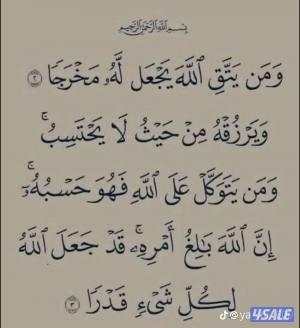 بِسْمِ اللَّهِ الرَّحْمَٰنِ الرَّحِيمِ
وَمَن يَتَّقِ ٱللَّهَ يَجْعَل لَّهُۥ مَخْرَجًا ٢
وَيَرْزُقْهُ مِنْ حَيْثُ لَا يَحْتَسِبُ ۚ
وَمَن يَتَوَكَّلْ عَلَى ٱللَّهِ فَهُوَ حَسْبُهُۥٓ ۚ
إِنَّ ٱللَّهَ بَـٰلِغُ أَمْرِهِۦ ۚ قَدْ جَعَلَ ٱللَّهُ
لِكُلِّ شَىْءٍ قَدْرًا ٣
4SALE